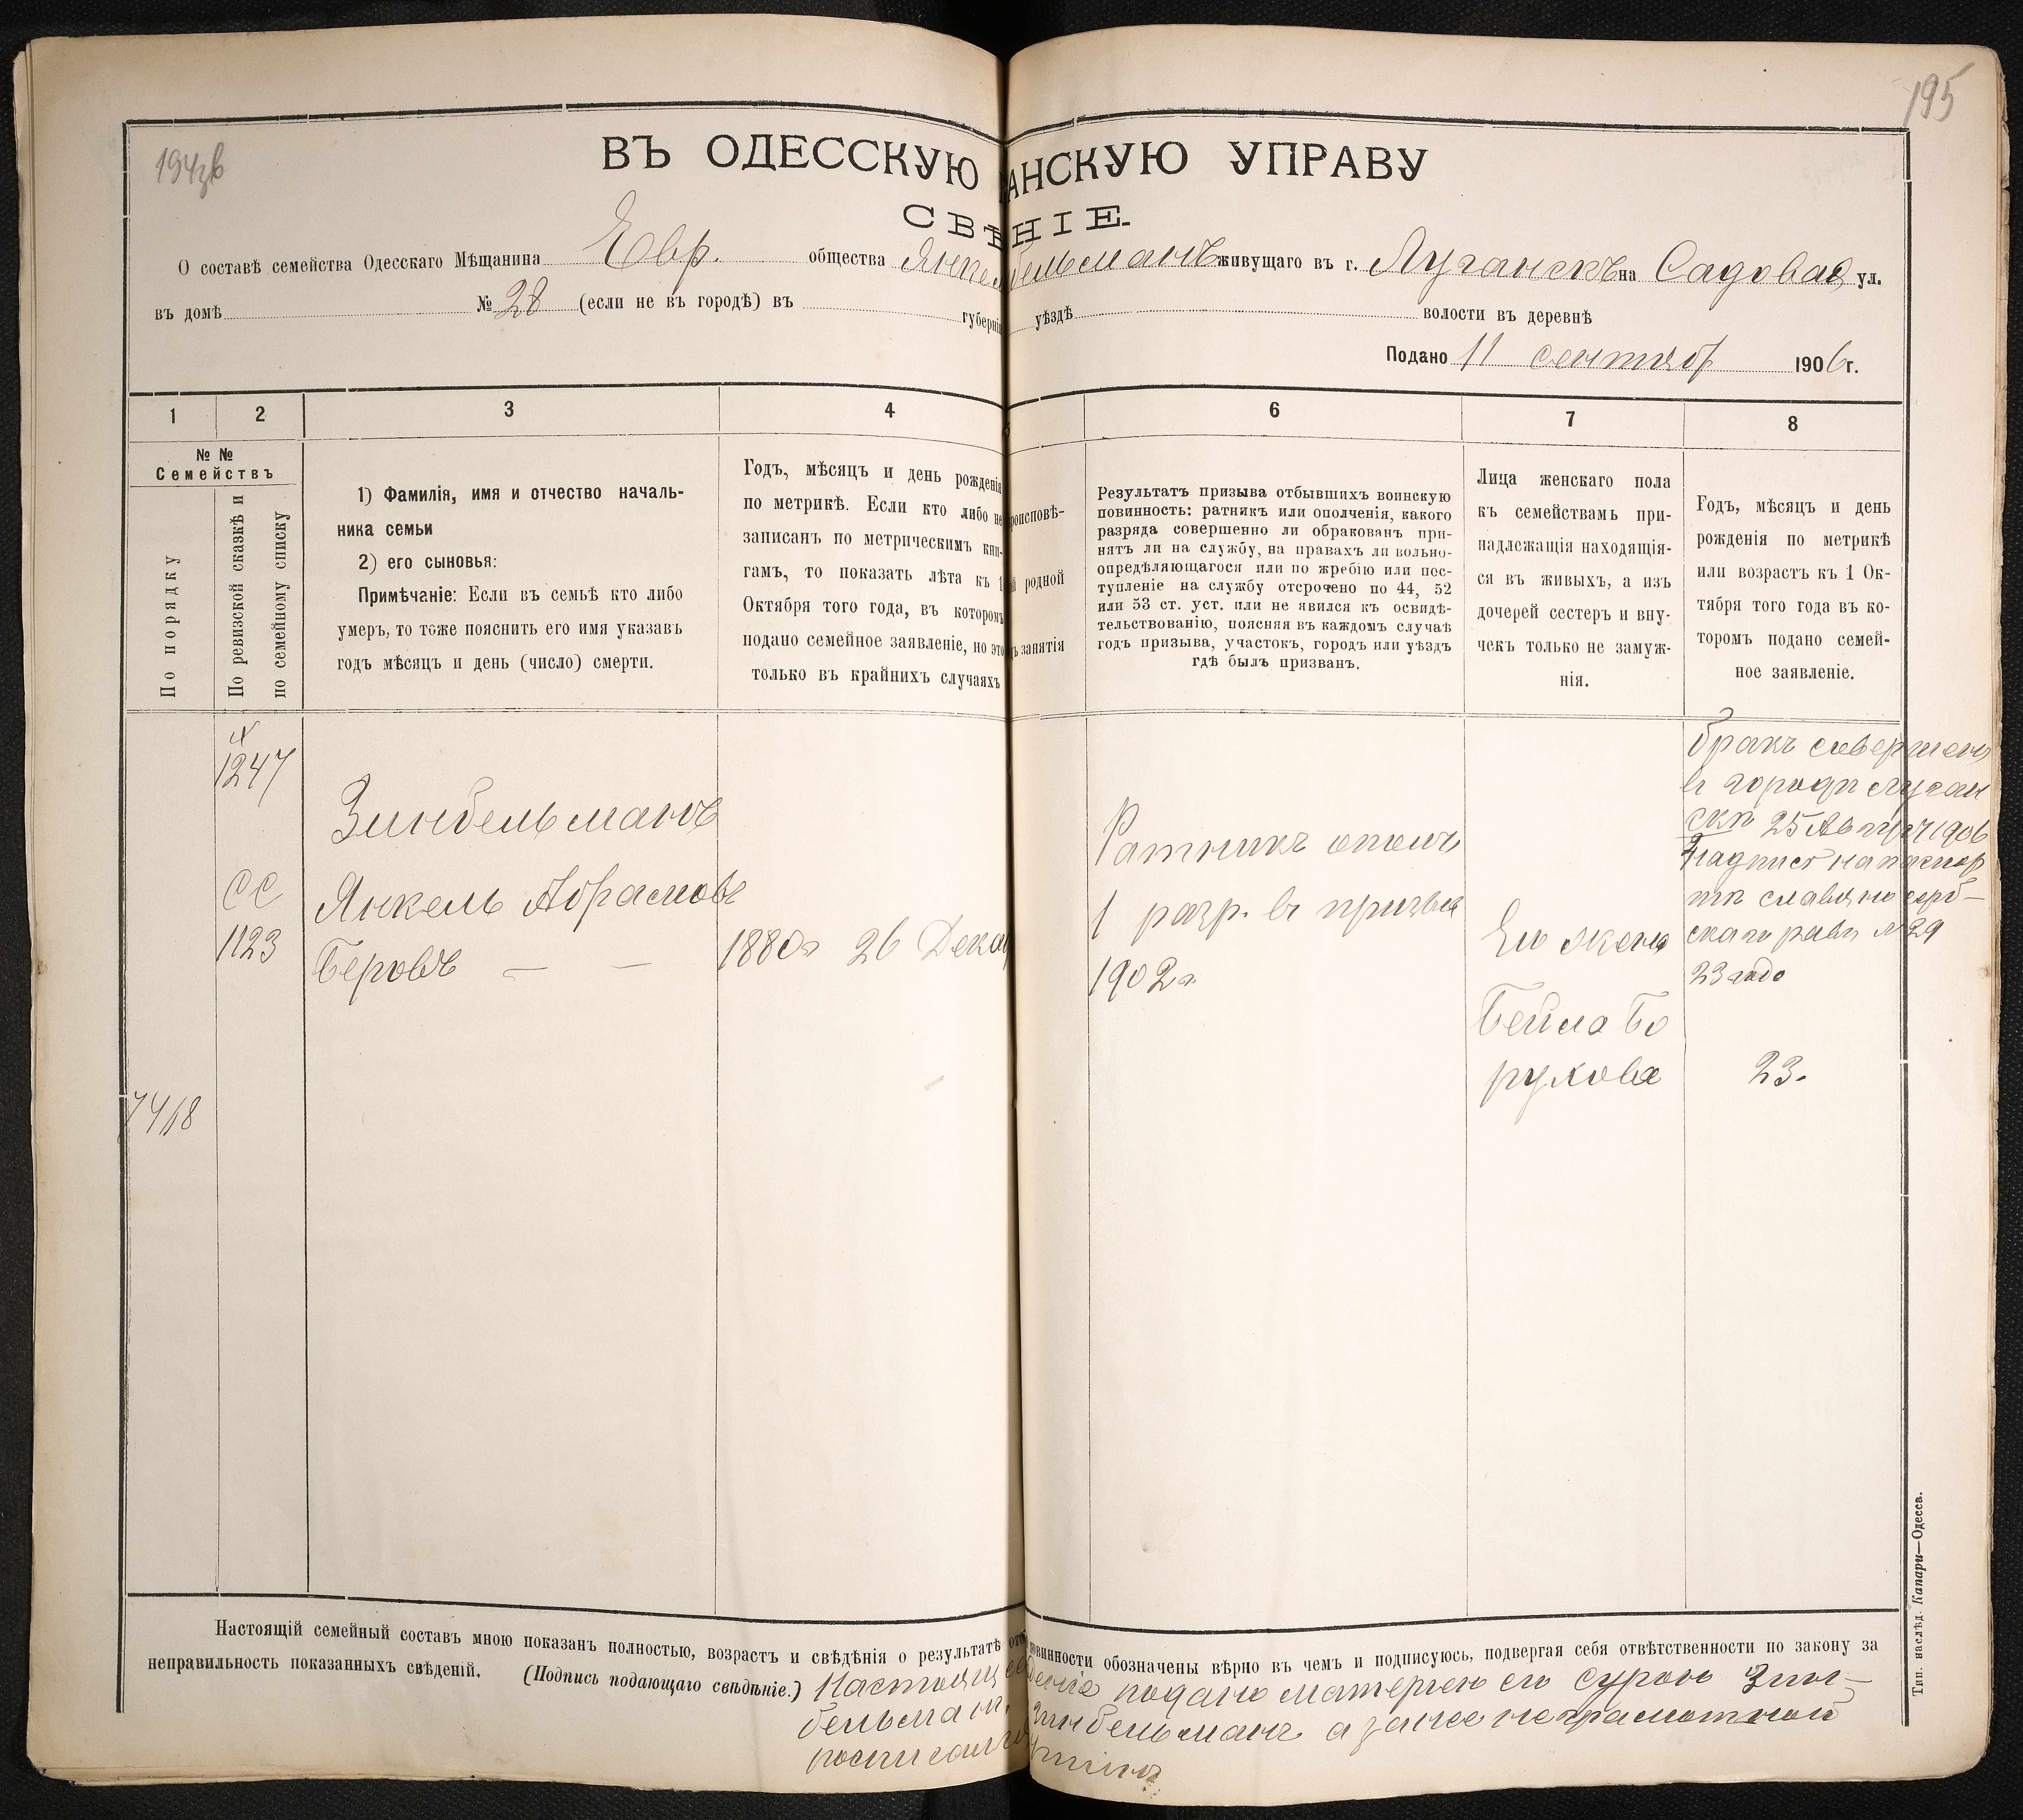 195
194зв
ВЪ ОДЕССКУЮ АНСКУЮ УПРАВУ
СВѢНІЕ.
О составѣ семейства Одесскаго Мѣщанина Евр. общества Янкел бельманъ живущаго въ г. Луганскъ на Садовая ул.
въ домѣ № 28 (если не въ городѣ) въ губерніи уѣздѣ волости въ деревнѣ
Подано 11 сентяб 1906 г.
1 2 3 4 6 7 8
№ №
Семействъ
По порядку
По ревизской сказкѣ и
по семейному списку
1) Фамилія, имя и отчество началь-
ника семьи
2) его сыновья:
Примѣчаніе: Если въ семьѣ кто либо
умеръ, то тоже пояснить его имя указавъ
годъ мѣсяцъ и день (число) смерти.
Годъ, мѣсяцъ и день рожденія
по метрикѣ. Если кто либо не
записанъ по метрическимъ кни-
гамъ, то показать лѣта къ 1
Октября того года, въ которомъ
подано семейное заявленіе, но это
только въ крайнихъ случаяхъ
роисповѣ-
родной
занятія
Результатъ призыва отбывшихъ воинскую
повинность: ратникъ или ополченія, какого
разряда совершенно ли обракованъ при-
нятъ ли на службу, на правахъ ли вольно-
опредѣляющагося или по жребію или пос-
тупленіе на службу отсрочено по 44, 52
или 53 ст. уст. или не явился къ освидѣ-
тельствованію, поясняя въ каждомъ случаѣ
годъ призыва, участокъ, городъ или уѣздъ
гдѣ былъ призванъ.
Лица женскаго пола
къ семействамъ при-
надлежащія находящія-
ся въ живыхъ, а изъ
дочерей сестеръ и вну-
чекъ только не замуж-
нія.
Годъ, мѣсяцъ и день
рожденія по метрикѣ
или возрастъ къ 1 Ок-
тября того года въ ко-
торомъ подано семей-
ное заявленіе.
1247
Зинбельманъ
СС
1123
Янкель Абрамовъ
Беровъ — —
1880г 26 Дека
Ратникъ ополч
1 разр. въ призыв
1902г.
Его жена
Бейла Бо
рухова
бракъ совершенъ
в городѣ Луган
скѣ 25 Авгу 1906
надпись на паспор
тѣ славяносерб-
скаго рав. № 29
23 года
23.
7418
Настоящій семейный составъ мною показанъ полностью, возрастъ и свѣдѣнія о результатѣ отб повинности обозначены вѣрно въ чемъ и подписуюсь, подвергая себя отвѣтственности по закону за
неправильность показанныхъ свѣденій. (Подпись подающаго свѣдѣніе.) Настоящ деніе подано матерью его Сурою Зин-
бельман. Зинбельманъ а за нее неграмотной
росписался
Тип. наслѣд. Капари—Одесса.